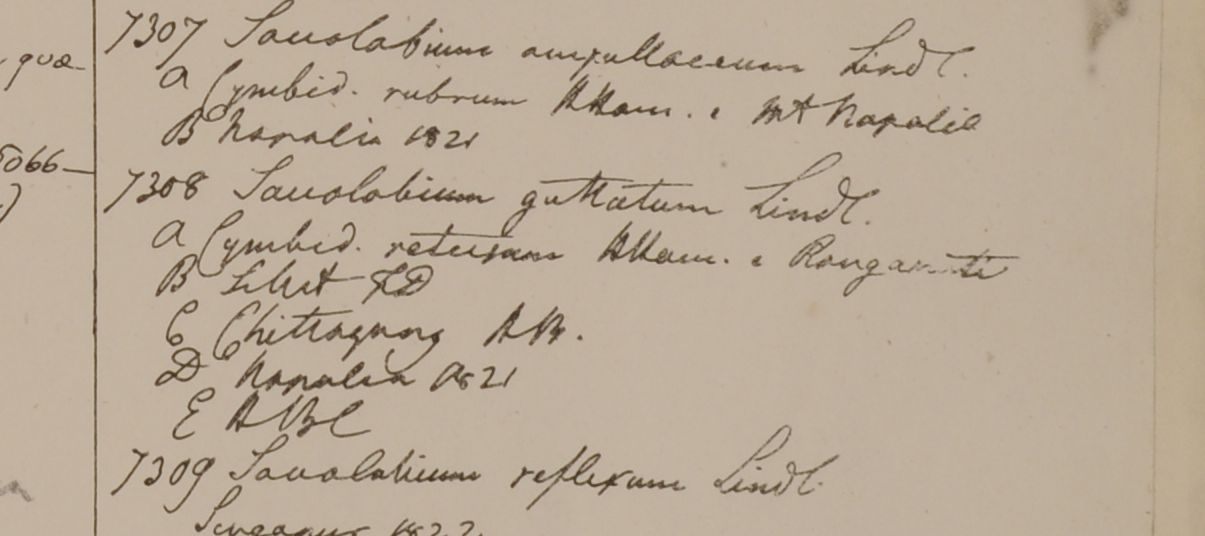 quæ
7307 Saccolabium ampullaceum Lindl.
a Cymbid. rubrum HHam. e Mt Napalie
B Napalia 1821
5066 —
7308 Saccolabium guttatum Lindl.
a Cymbid. retusum HHam. e Rangamati
B Silhet FD
C Chittagong HB.
D Napalia 1821
E HBC
7309 Saccolabium reflexum Lindl.
Singapur 1822